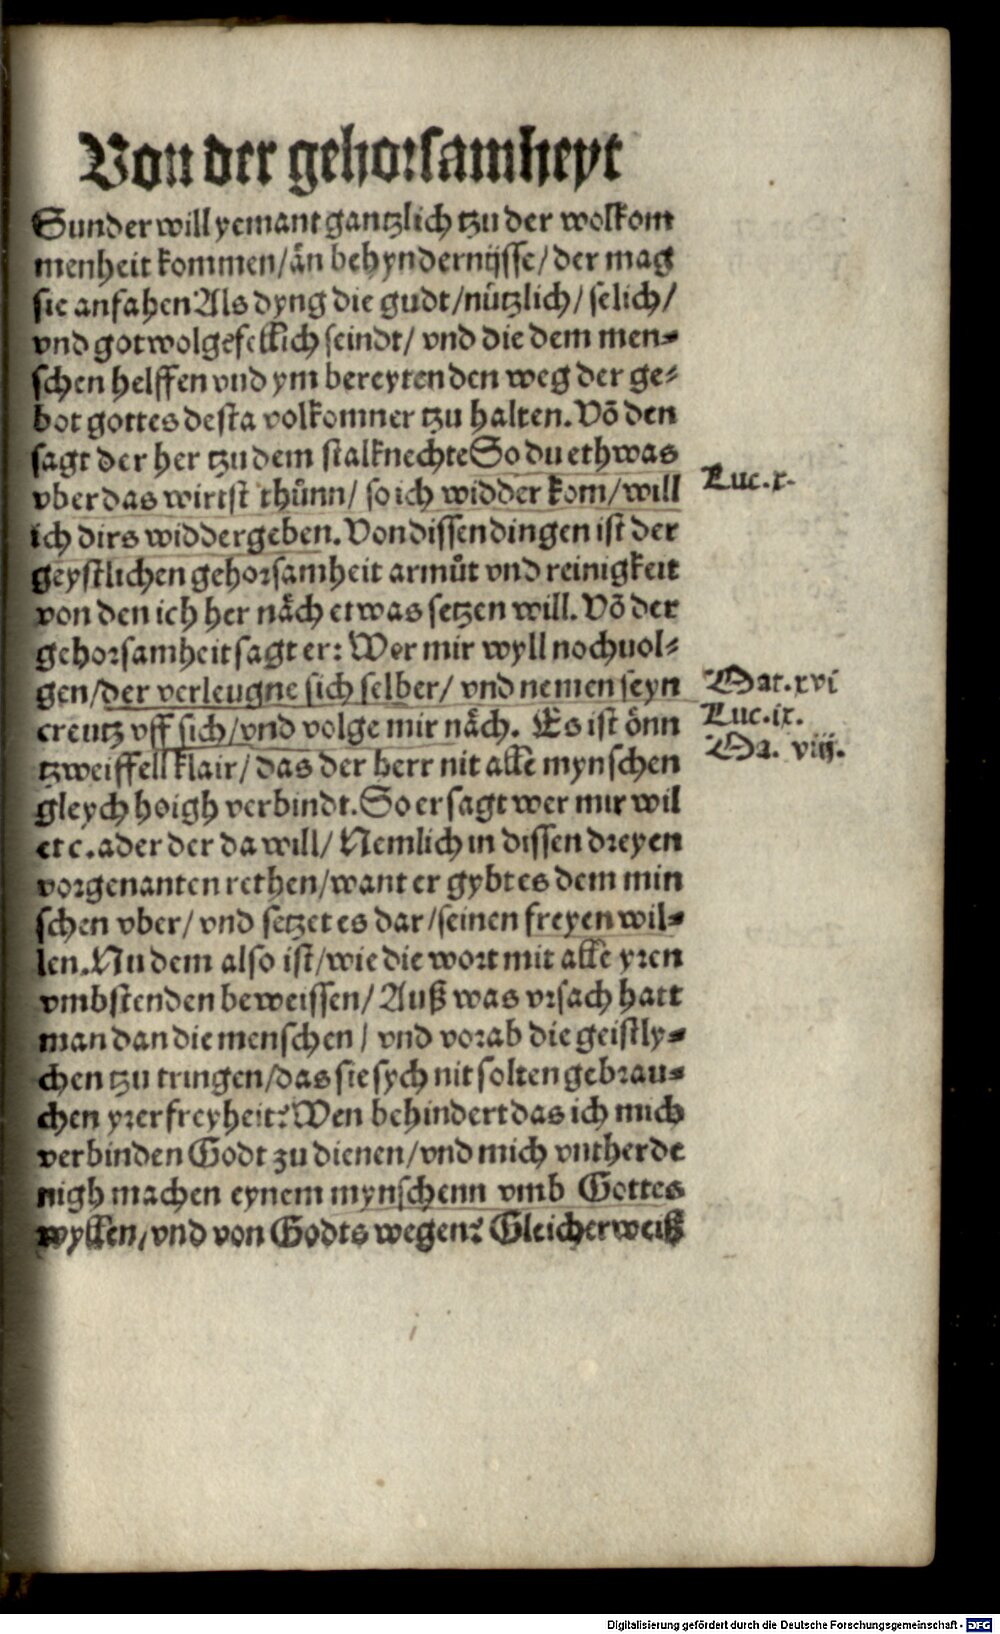 Von der gehorsamheyt
Sunder will yemant gantzlich tzu der wolkom
menheit kommen/ än behyndernijsse/ der mag
sie anfahen Als dyng die gudt/ nützlich/ selich/
vnd got wolgefellich seindt/ vnd die dem men-
schen helffen vnd ym bereyten den weg der ge-
bot gottes desta volkomner tzu halten. Võ den
sagt der her tzu dem stalknechte So du ethwas
vber das wirtst thünn/ so ich widder kom/ will
Luc. x.
ich dirs widdergeben. Von dissen dingen ist der
geystlichen gehorsamheit armůt vnd reinigkeit
von den ich her näch etwas setzen will. Võ der
gehorsamheit sagt er: Wer mir wyll nochuol-
gen/ der verleugne sich selber/ vnd nemen seyn
Mat. xvi
creutz vff sich/ vnd volge mir näch. Es ist önn
Luc. ix.
tzweiffell klair/ das der herr nit alle mynschen
Ma. viij.
gleych hoigh verbindt. So er sagt wer mir wil
etc. ader der da will/ Nemlich in dissen dreyen
vorgenanten rethen/ want er gybt es dem min
schen vber/ vnd setzet es dar/ seinen freyen wil-
len. Nu dem also ist/ wie die wort mit alle yren
vmbstenden beweissen/ Auß was vrsach hatt
man dan die menschen/ vnd vorab die geistly-
chen tzu tringen/ das sie sych nit solten gebrau-
chen yrer freyheit? Wen behindert das ich mich
verbinden Godt zu dienen/ vnd mich vntherde
nigh machen eynem mynschenn vmb Gottes
wyllen/ vnd von Godts wegen? Gleicher weiß
Digitalisierung gefördert durch die Deutsche Forschungsgemeinschaft - DFG